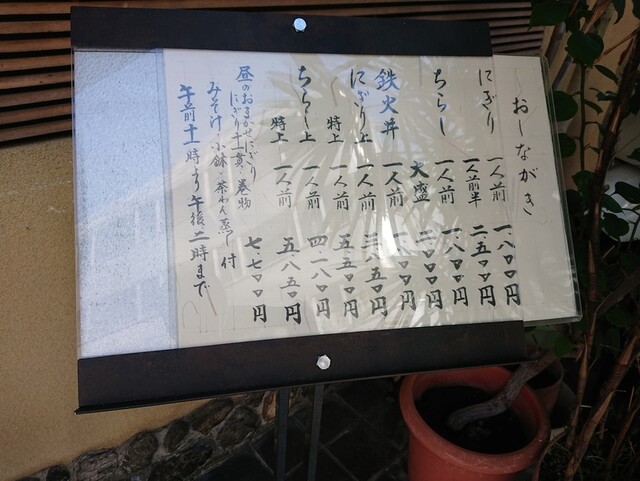 おしながき
にぎり 一人前 一・八〇〇円
一人前半 二・五〇〇円
ちらし 一人前 一・八〇〇円
大盛 二・〇〇〇円
鉄火丼 一人前
にぎり上 一人前 三・八五〇円
特上 一人前 五・五〇〇円
ちらし上 一人前 四・一八〇円
特上 一人前 五・八五〇円
昼のおまかせにぎり
にぎり十一貫・巻物 七・七〇〇円
みそ汁・小鉢・茶わん蒸し付
午前十一時より午後二時まで